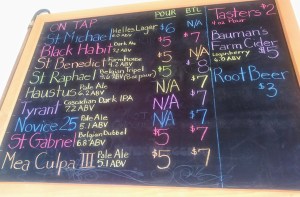 ON TAP POUR BTL
St Michael Helles Lager $6 N/A
Black Habit Dark Ale $5
St Benedict Farmhouse $5 8
St Raphael Belgian Tripel $7
Haustus Pale Ale 6.2 ABV N/A
Tyrant Cascadian Dark IPA 7.2 ABV N/A $7
Novice 25 Pale Ale 5.1 ABV N/A $7
St Gabriel Belgian Dubbel 6.8 ABV $5
Mea Culpa III Pale Ale 5.1 ABV $5 $7
Tasters $2
4 oz Pour
Bauman's
Farm Cider
Loganberry $5
Root Beer
$3